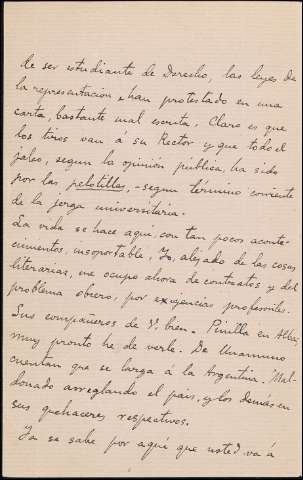 de ser estudiante de Derecho, las leyes de
la representación e han protestado en una
carta, bastante mal escrita. Claro es que
los tiros van á su Rector y que todo el
jaleo, segun la opinión pública, ha sido
por las pelotillas, -segun término corriente
de la jerga universitaria.-
La vida se hace aqui, con tan pocos aconte-
cimientos, insoportable, Yo, alejado de las cosas
literarias, me ocupo ahora de contratos y del
problema obrero, por exigencias profesionales.
Sus compañeros de V. bien. Pinilla en Alba,
muy pronto he de verle. De Unamuno
cuentan que se larga á la Argentina. Mal-
donado arreglando el pais, y los demás en
sus quehaceres respectivos.
Ya se sabe por aqui que usted va á